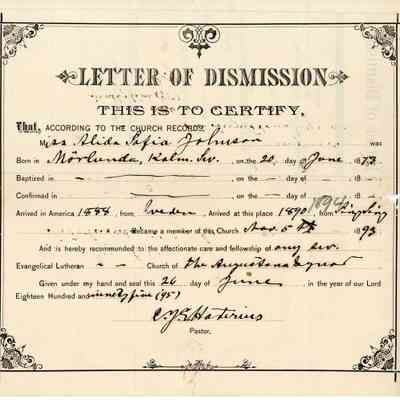 LETTER OF DISMISSION
THIS IS TO CERTIFY,
That, ACCORDING TO THE CHURCH RECORDS
Miss Alida Sofia Johnson was
Born in Mörlunda, Kalm. , on the 20, day of June 1873.
Baptized in — , on the — day of — 18 —
Confirmed in — , on the — day of — 18 —
Arrived in America 1888, from Sweden. Arrived at this place 1890, from
1894
Became a member of this Church Nov. 5 th 1893
And is hereby recommended to the affectionate care and fellowship of any Sw.
Evangelical Lutheran - - Church of the Augustana Synod
Given under my hand and seal this 26 day of June in the year of our Lord
Eighteen Hundred and ninety five (95)
Pastor.